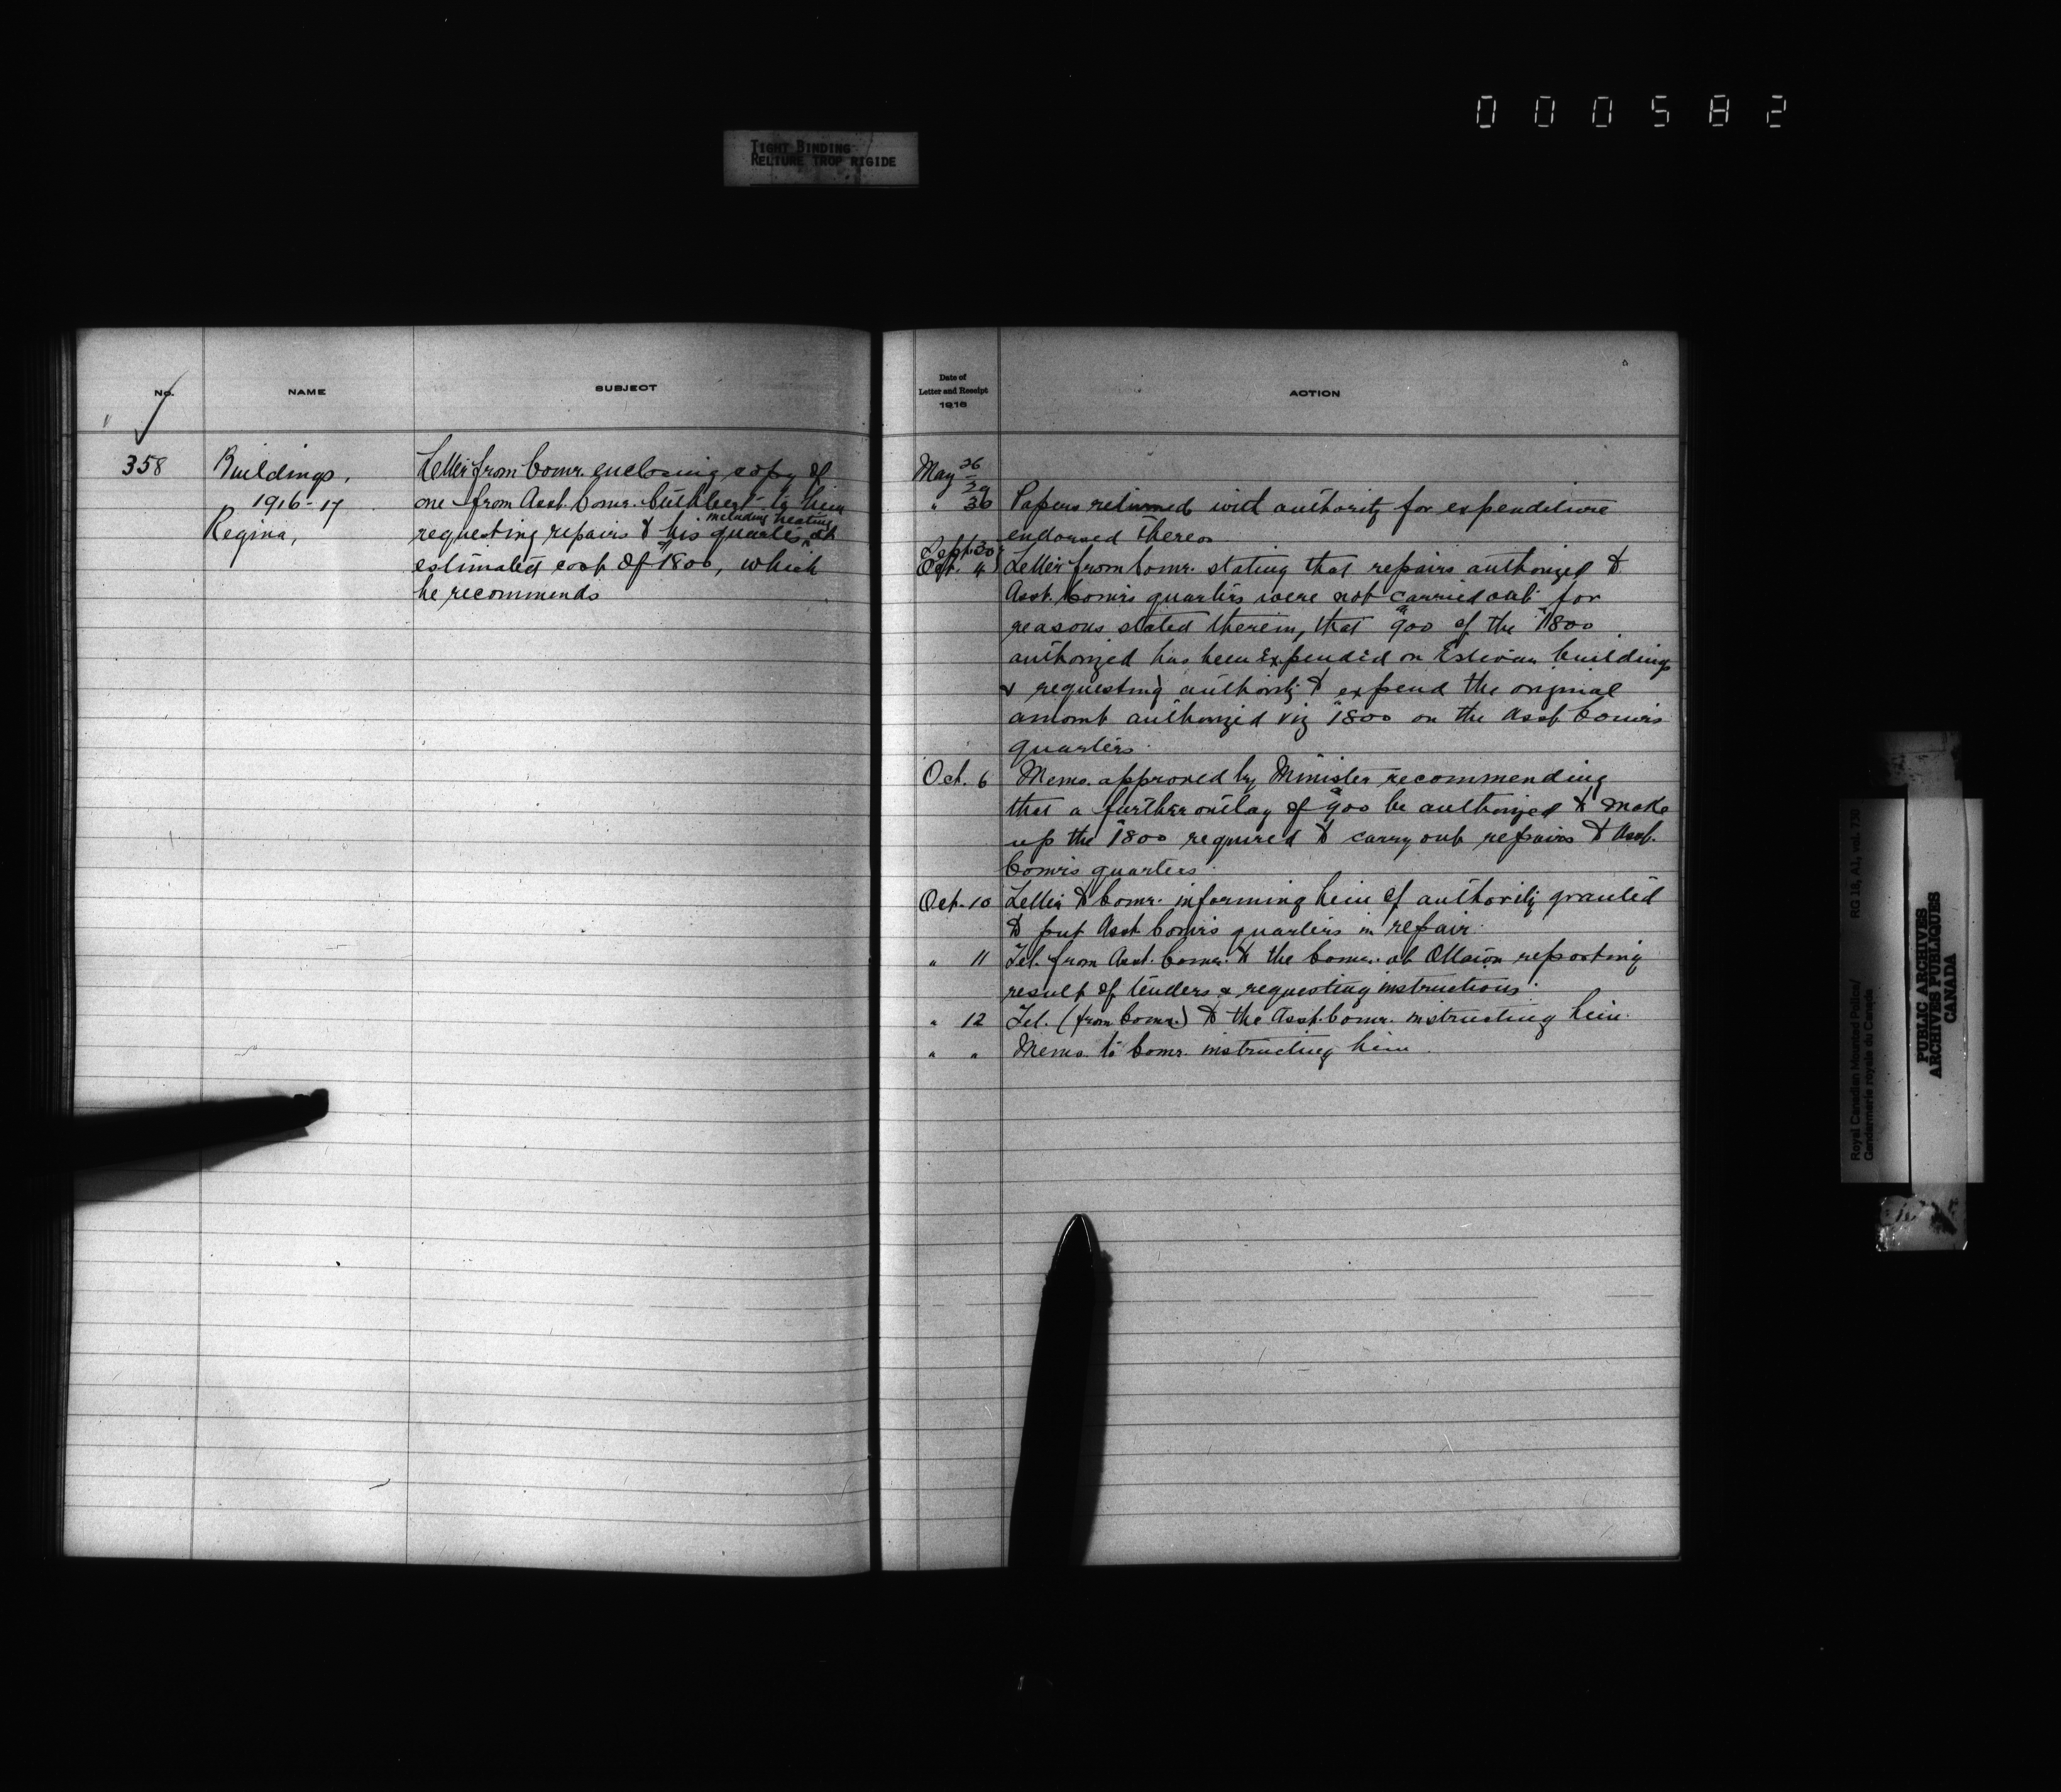 000582
TIGHT BINDING
RELIURE TROP RIGIDE
No.
NAME
SUBJECT
358
Buildings,
1916-17
Regina,
Letter from Comr. enclosing copy of
one from Asst. Comr. Cuthbert to him
including heating
requesting repairs to his quarters at
estimated cost of $1800, which
he recommends
Date of
Letter and Receipt
1916
ACTION
May 26
29
" 30 Papers returned with authority for expenditure
endorsed thereon
Sept. 30
Oct. 4 Letter from Comr. stating that repairs authorized to
Asst. Comr's quarters were not carried out for
reasons stated therein, that $900 of the $1800
authorized has been expended on Estevan buildings
& requesting authority to expend the original
amount authorized viz $1800 on the Asst. Comr's
quarters.
Oct. 6 Memo. approved by Minister recommending
that a further outlay of $900 be authorized to make
up the $1800 required to carry out repairs to Asst.
Comr's quarters.
Oct. 10 Letter to Comr. informing him of authority granted
to put Asst. Comr's quarters in repair.
" 11 Tel. from Asst. Comr. to the Comr. at Ottawa reporting
result of tenders & requesting instructions.
" 12 Tel. (from Comr.) to the Asst. Comr. instructing him.
" " Memo. to Comr. instructing him.
Royal Canadian Mounted Police/
Gendarmerie royale du Canada
RG 18, A1, vol. 730
PUBLIC ARCHIVES
ARCHIVES PUBLIQUES
CANADA